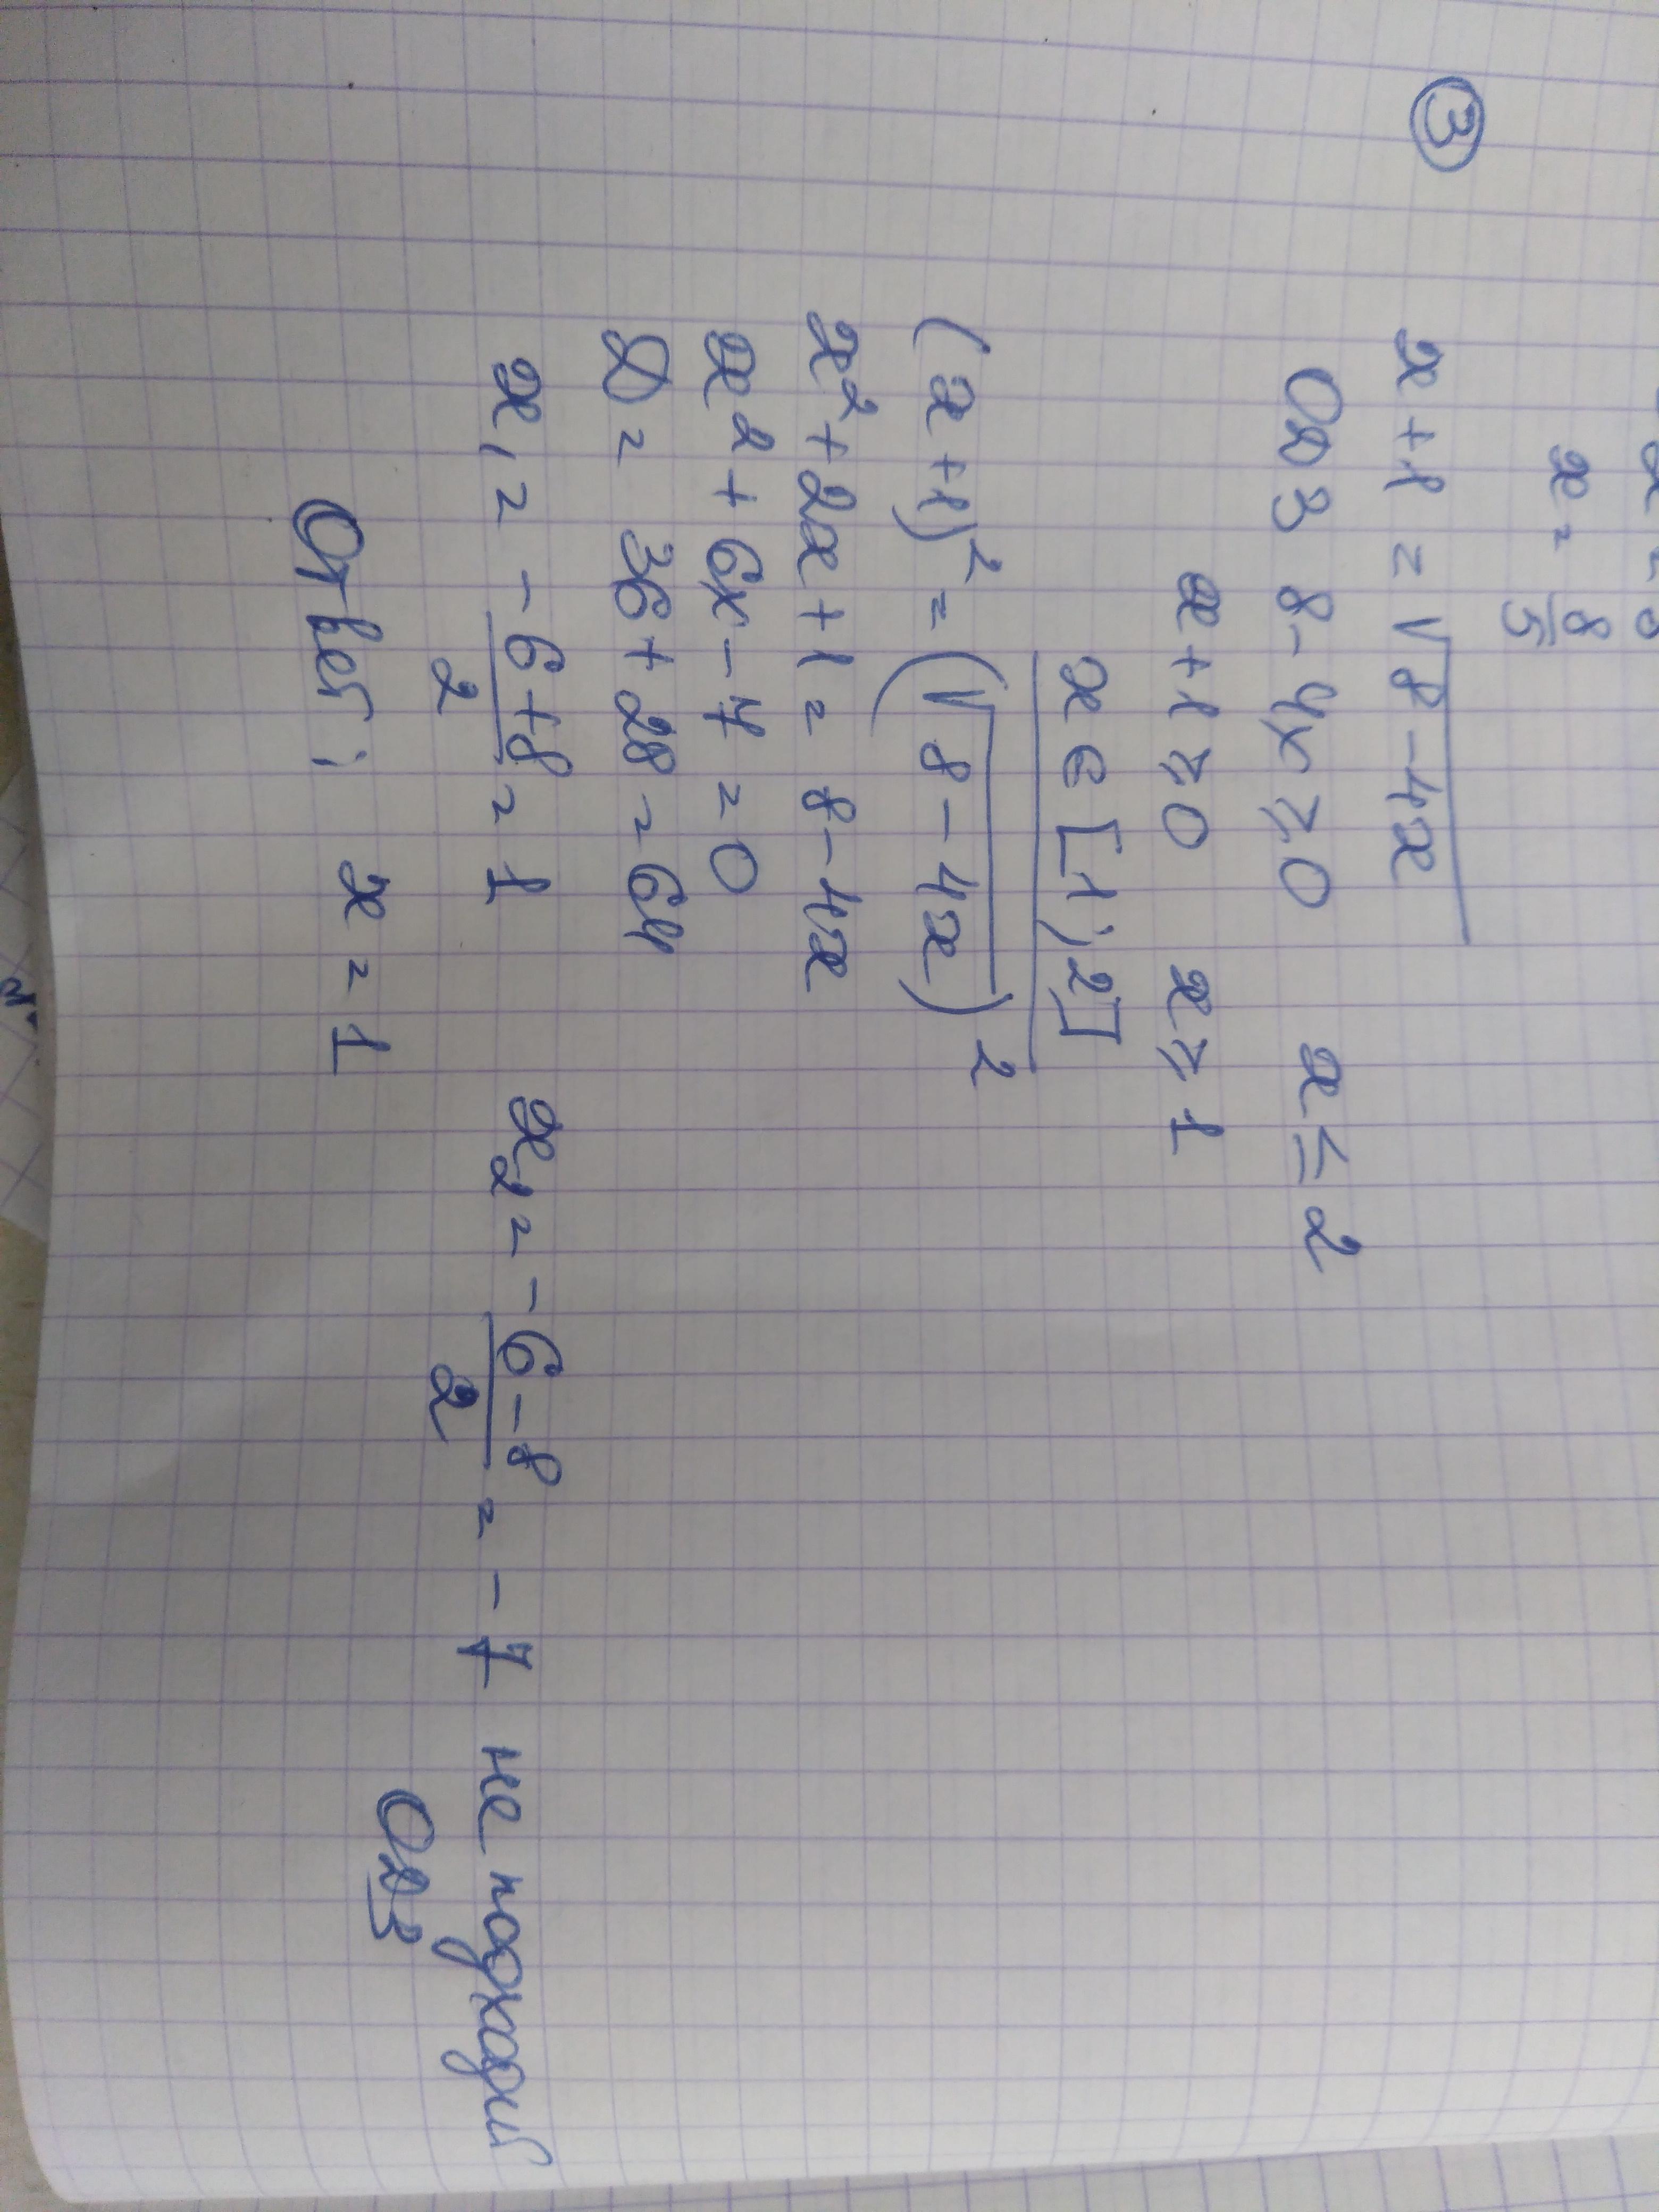 x = 8/5
③ x + 1 = √(8 - 4x)
ОДЗ 8 - 4x ≥ 0 x ≤ 2
x + 1 ≥ 0 x ≥ 1
x ∈ [1; 2]
(x + 1)² = (√(8 - 4x))²
x² + 2x + 1 = 8 - 4x
x² + 6x - 7 = 0
D = 36 + 28 = 64
x₁ = -6+8/2 = 1 x₂ = -6-8/2 = -7 не подходит
ОДЗ
Ответ: x = 1